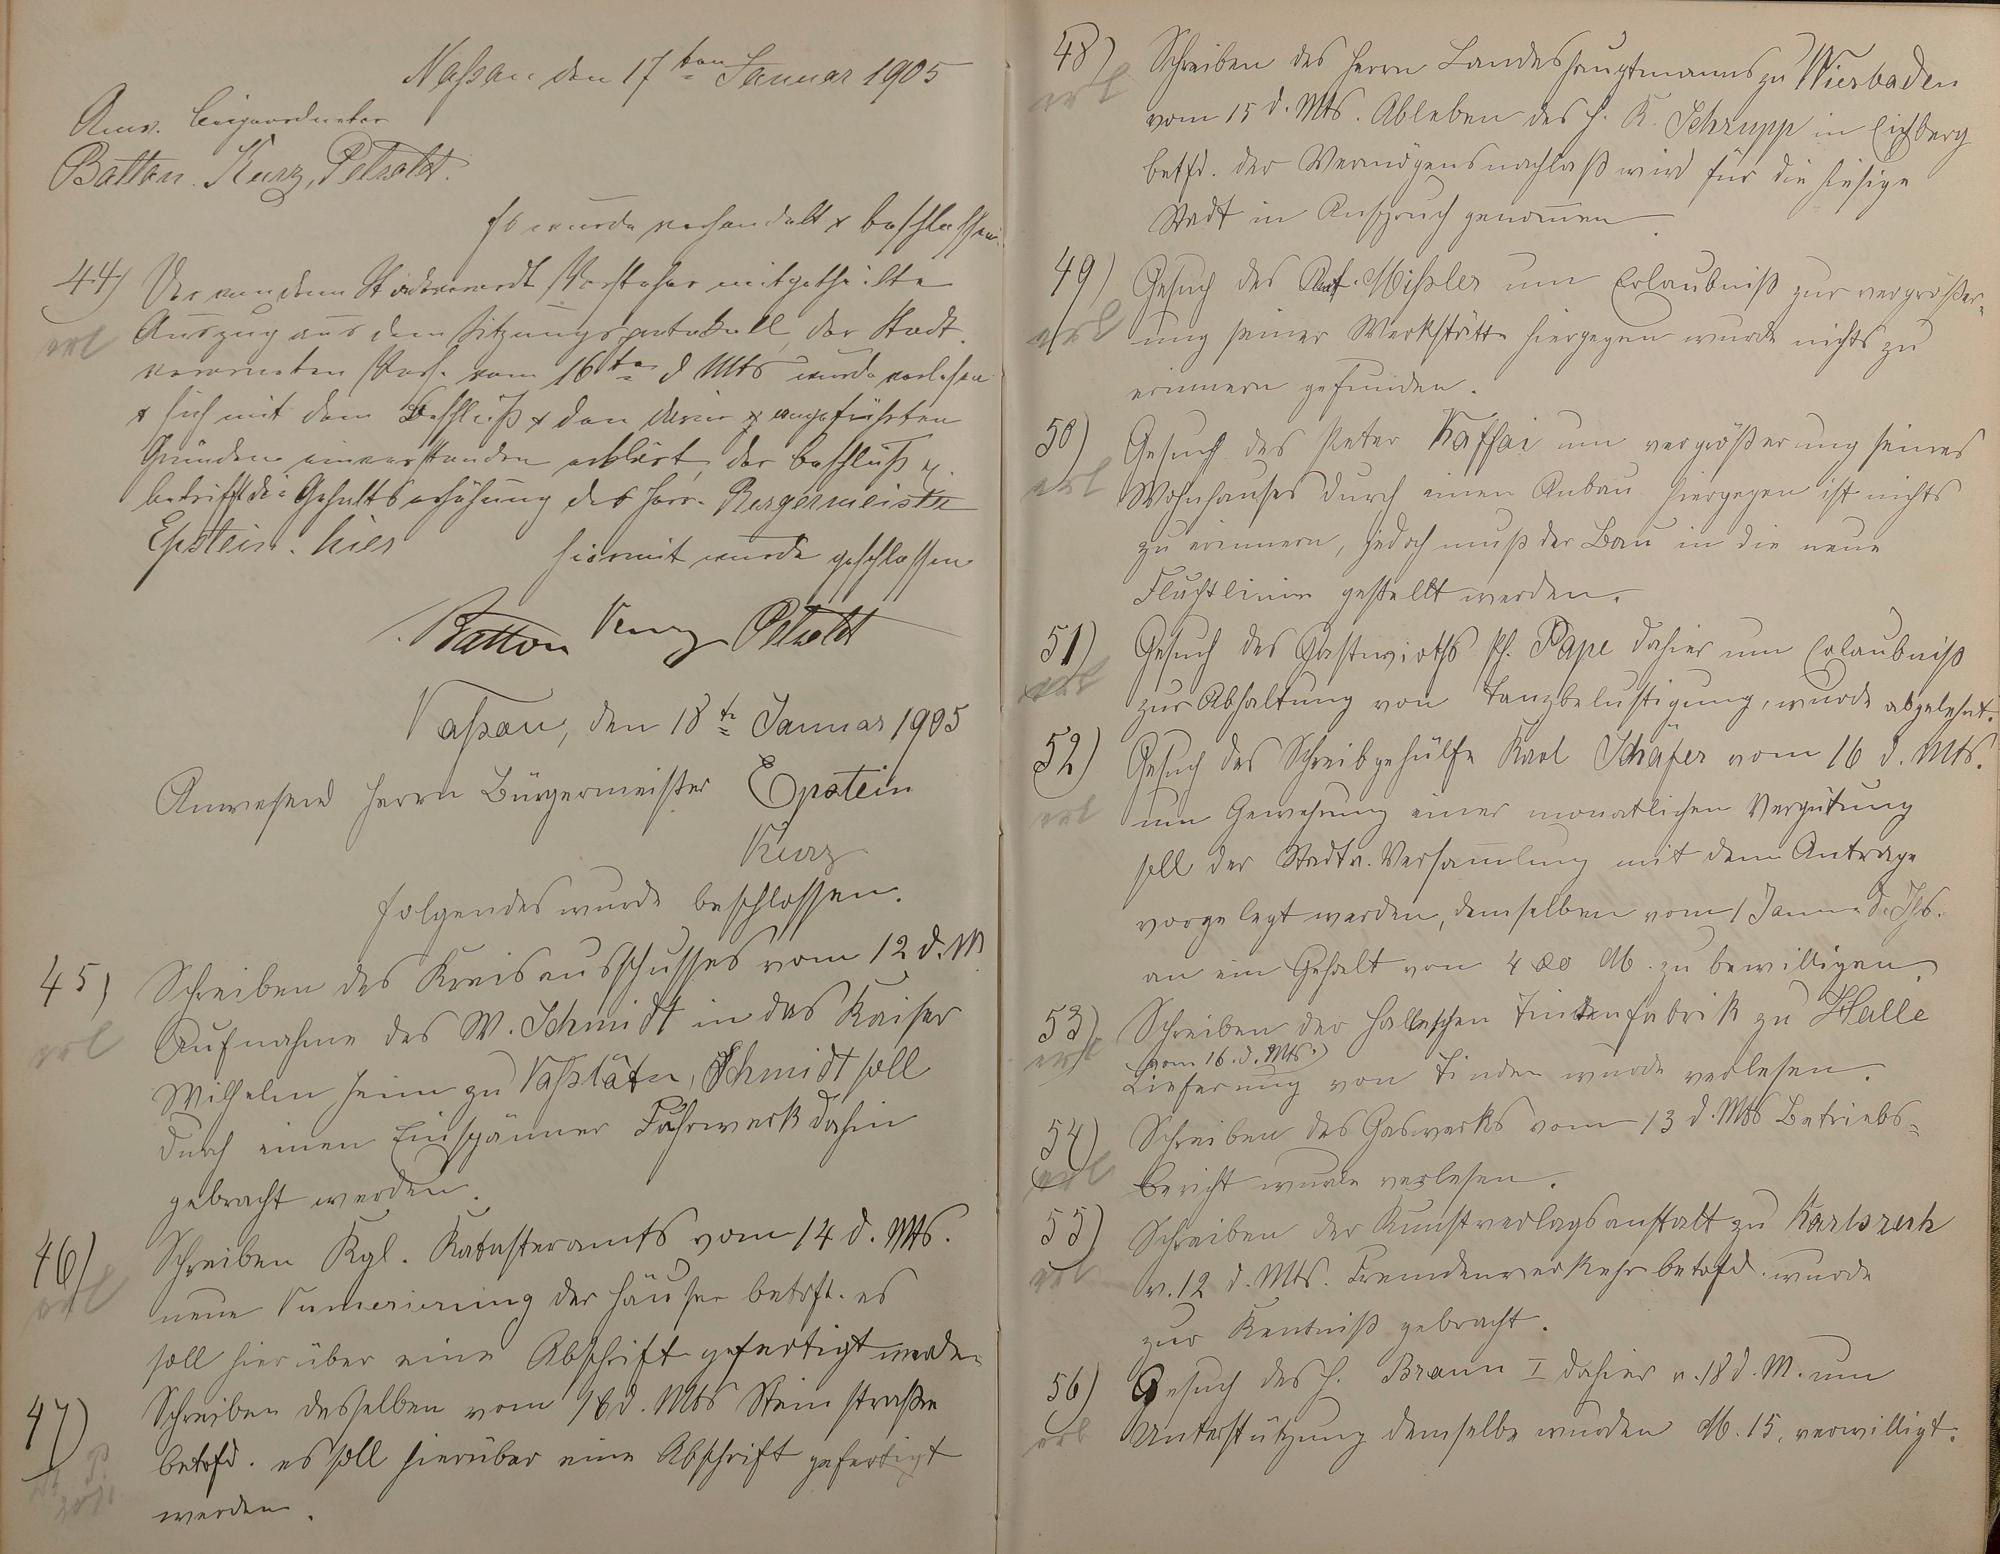 Naßau den 17ten Januar 1905
Anw. Beigeordneter
Batton. Kurz, Petzoldt.
Es wurde verhandelt & beschlossen
44) Der von dem Vorsteher mitgetheilte
erl Auszug aus dem Sitzungsprotokoll der Stadt
verordneten Vers. vom 16ten d Mts wurde verlesen
& sich mit dem Beschluß & den darin angeführten
Gründen einverstanden erklärt, der Beschluß
betrifft die Gehaltserhöhung des Herrn Bürgermeister
Epstein. hier hiermit wurde geschlossen
Batton Kurz Petzoldt
Naßau, den 18te Januar 1905
Anwesend Herrn Bürgermeister Epstein
Kurz
folgendes wurde beschlossen.
45) Schreiben des Kreisausschusses vom 12 d. M
erl Aufnahme des W. Schmidt in das Kaiser
Wilhelm Heim zu Naßtätten, Schmidt soll
durch einen Einspänner Fuhrwerk dahin
gebracht werden.
46) Schreiben Kgl. Katasteramts vom 14 d. Mts.
erl neue Numerierung der Häuser betrft. es
soll hierüber eine Abschrift gefertigt werden
47) Schreiben desselben vom 16 d. Mts Steinstraße
betrfd. es soll hierüber eine Abschrift gefertigt
werden.
48) Schreiben des Herrn Landeshauptmanns zu Wiesbaden
erl vom 15 d. Mts. Ableben des H. K. Schrupp in Eichberg
betfd. der Vermögensnachlaß wird für die hiesige
Stadt in Anspruch genommen.
49) Gesuch des Ant. Mißler um Erlaubniß zur vergrößer-
erl ung seiner Werkstätte hiergegen wurde nichts zu
erinnern gefunden.
50) Gesuch des Peter Kaffai um vergrößerung seines
erl Wohnhauses durch einen Anbau hiergegen ist nichts
zu erinnern, jedoch muß der Bau in die neue
Fluchtlinie gestellt werden.
51) Gesuch des Gastwirths Ph. Pape dahier um Erlaubniß
erl zur Abhaltung von Tanzbelustigung, wurde abgelehnt.
52) Gesuch des Schreibgehülfe Karl Schäfer vom 16 d. Mts.
erl um Gewehrung einer monatlichen Vergütung
soll der Stadtv. Versammlung mit dem Antrage
vorgelegt werden, demselben vom 1 Januar d. Jhs.
an ein Gehalt von 400 M. zu bewilligen.
53) Schreiben der Halleschen Tintenfabrik zu Halle
erl (vom 16. d. Mts.)
Lieferung von Tinden wurde verlesen.
54) Schreiben des Gaswerks vom 13 d. Mts Betriebs-
erl bericht wurde verlesen.
55) Schreiben der Kunstverlagsanstalt zu Karlsruh
erl v. 12 d. Mts. Fremdenverkehr betrfd. wurde
zur Kentniß gebracht.
56) Gesuch des H. Braun I dahier v. 18 d. M. um
erl Unterstützung demselbe wurden M. 15, verwilligt.